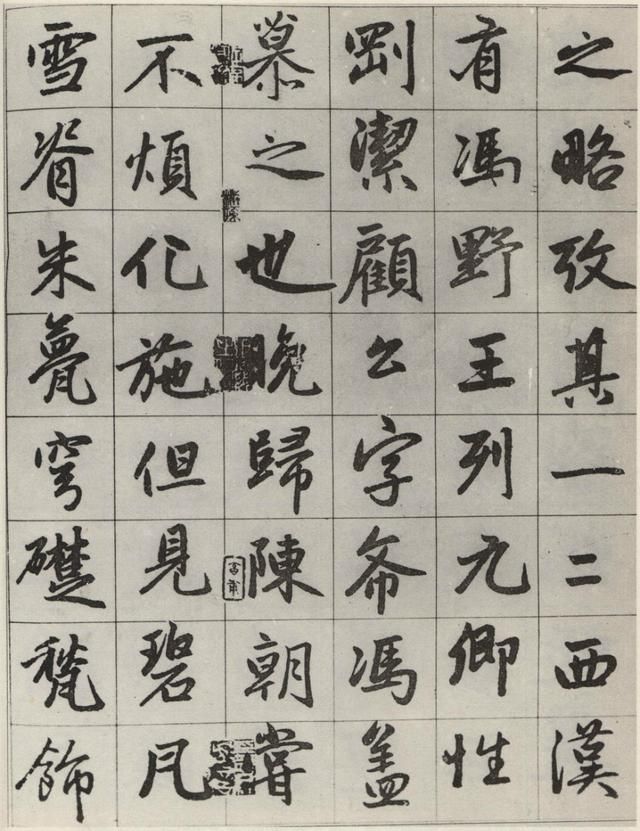 之略攷其一二西漢
有馮野王列九卿性
剛潔顧公字希馮盖
慕之也晚歸陳朝嘗
不煩化施但見碧瓦
雪脊朱甍穹礎甃飾